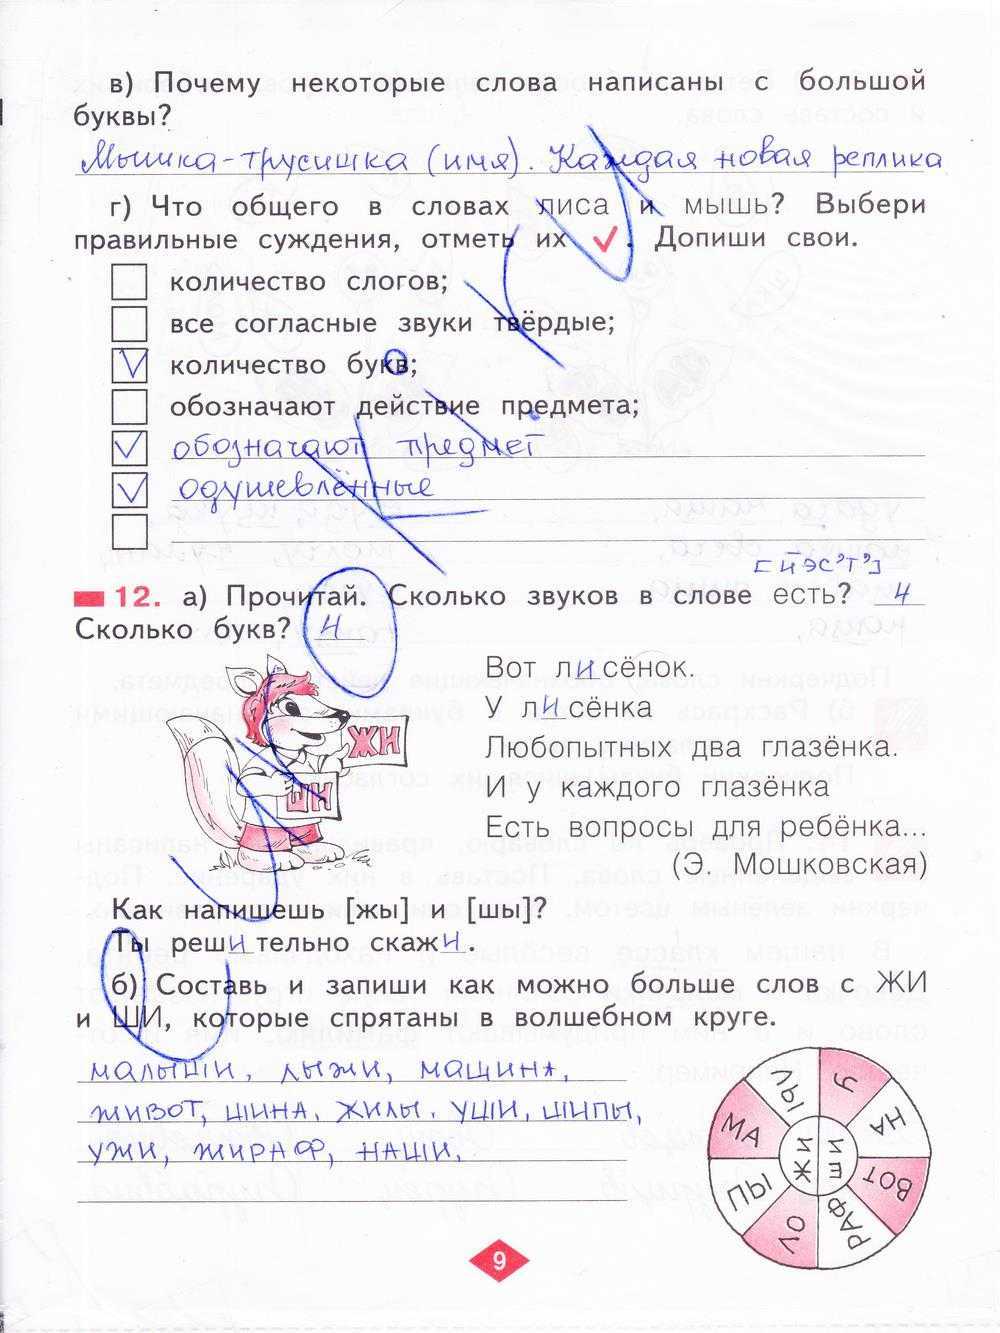 в) Почему некоторые слова написаны с большой
буквы?
Мышка-трусишка (имя). Каждая новая реплика
г) Что общего в словах лиса и мышь? Выбери
правильные суждения, отметь их ✓. Допиши свои.
количество слогов;
все согласные звуки твёрдые;
V количество букв;
обозначают действие предмета;
V обозначают предмет
V одушевлённые
[йэс'т']
12. а) Прочитай. Сколько звуков в слове есть? 4
Сколько букв? 4
Вот лисёнок.
У лисёнка
Любопытных два глазёнка.
И у каждого глазёнка
Есть вопросы для ребёнка...
(Э. Мошковская)
ЖИ
ШИ
Как напишешь [жы] и [шы]?
Ты решительно скажи.
б) Составь и запиши как можно больше слов с ЖИ
и ШИ, которые спрятаны в волшебном круге.
малыши, лыжи, машина,
живот, шина, жилы. уши, шипы,
ужи, жираф, наши.
МА
У
НА
ВОТ
РАФ
ПЫ
ЖИ
ШИ
9